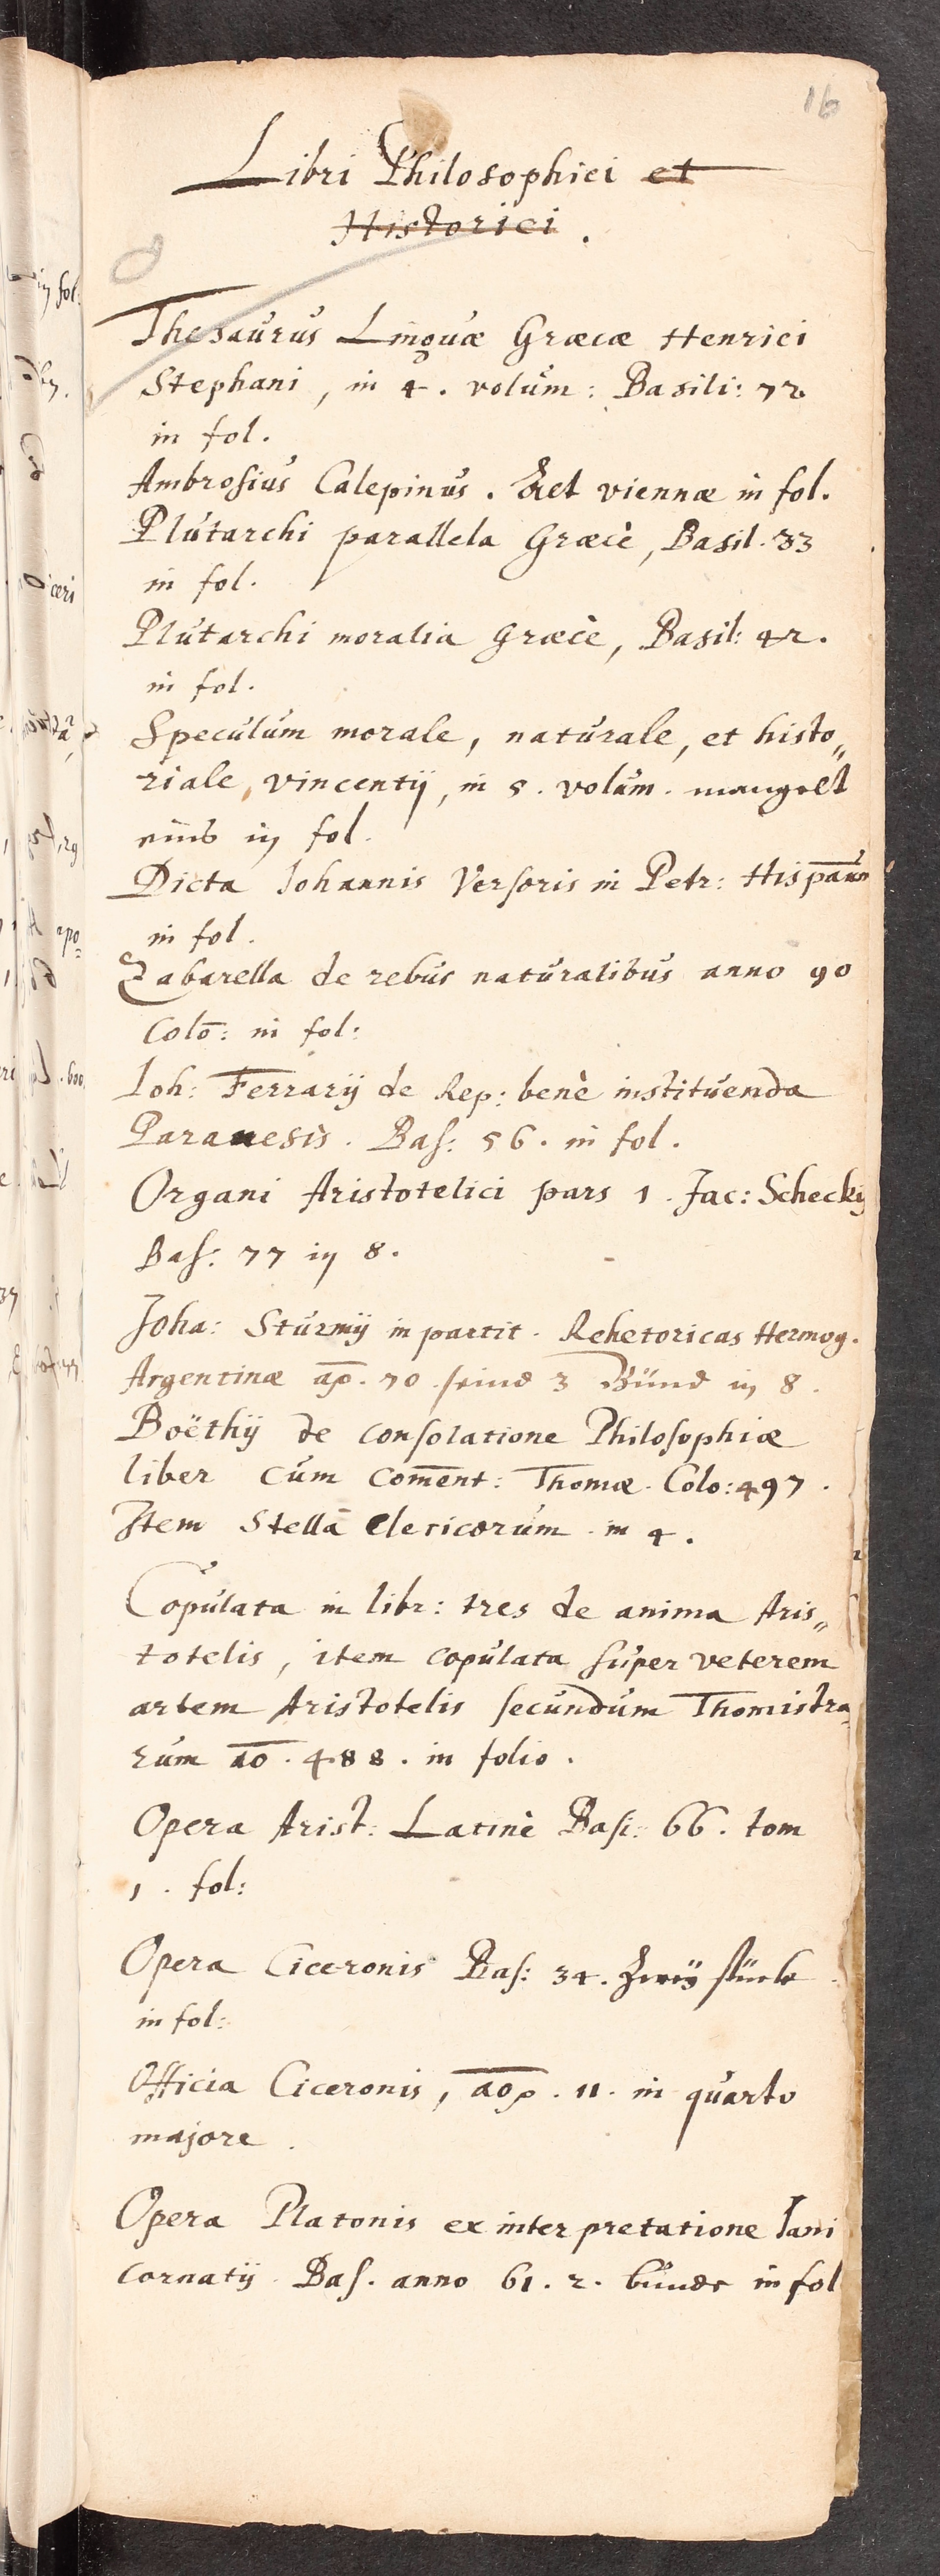 16
Libri Philosophici et
Historici.
Thesaurus Linguæ Græcæ Henrici
Stephani, in 4. volum: Basili: 72
in fol.
Ambrosius Calepinus. viennæ in fol.
Plutarchi parallela Græcè, Basil. 33
in fol.
Plutarchi moralia Græcè, Basil: 42.
in fol.
Speculum morale, naturale, et histo„
riale, vincentij, in 5. volum. mangelt
eins in fol.
Dicta Johannis Versoris in Petr: Hispanū
in fol.
Zabarella de rebus naturalibus anno 90
Colō: in fol:
Ioh: Ferrarij de Rep: benè instituenda
Paranesis. Bas: 56. in fol.
Organi Aristotelici pars 1. Jac: Scheckij
Bas: 77 in 8.
Joha: Sturmij in partit. Rehetoricas Hermog.
Argentinæ 70 seind 3 Bünd in 8.
Boëthij de consolatione Philosophiæ
liber cum com̄ent: Thomæ. Colo: 497.
Item Stella Clericorum in 4.
Copulata in libr: tres de anima Aris„
totelis, item copulata super veterem
artem Aristotelis secundum Thomistra„
rum ao. 488. in folio.
Opera Arist: Latinè Basi: 66. tom
1. fol:
Opera Ciceronis Bas: 34. Zweÿ stück
in fol:
Officia Ciceronis, 11. in quarto
majore.
Opera Platonis ex interpretatione Jani
Cornatij. Bas. anno 61. 2. bünde in fol